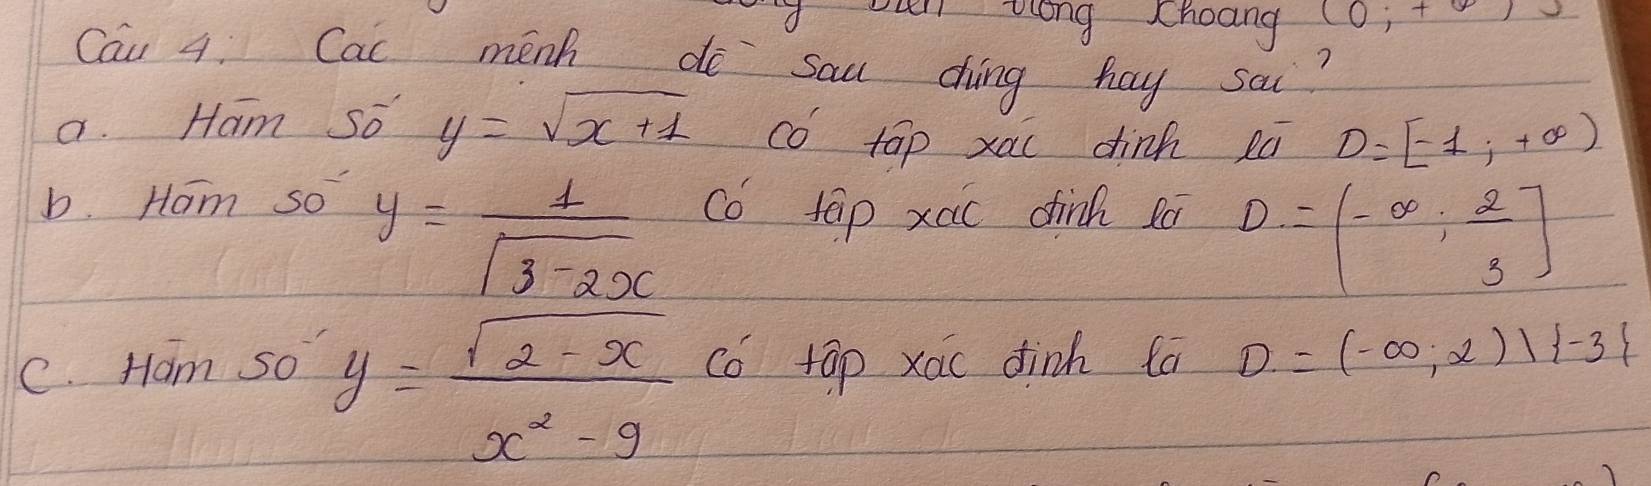 trong khoảng (0; +∞)
Câu 4: Các mệnh đề sau đúng hay sai?
a. Hàm số y = √(x+1) có tập xác định là D = [-1; +∞)
b. Hàm số y = 1/√(3-2x) có tập xác định là D = (-∞; 2/3]
c. Hàm số y = √(2-x)/(x²-9) có tập xác định là D = (-∞; 2) \ {-3}